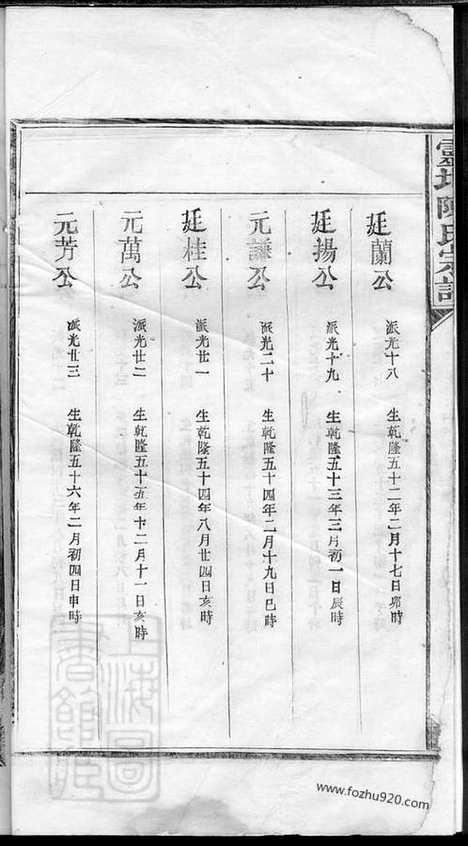 靈坵陳氏宗譜
廷蘭公 派光十八 生乾隆五十二年二月十七日卯時
廷揚公 派光十九 生乾隆五十三年三月初一日辰時
元謙公 派光二十 生乾隆五十四年二月十九日巳時
廷桂公 派光廿一 生乾隆五十四年八月廿四日亥時
元萬公 派光廿二 生乾隆五十五年十二月十一日亥時
元芳公 派光廿三 生乾隆五十六年二月初四日申時
上海圖書館藏
www.fozhu920.com